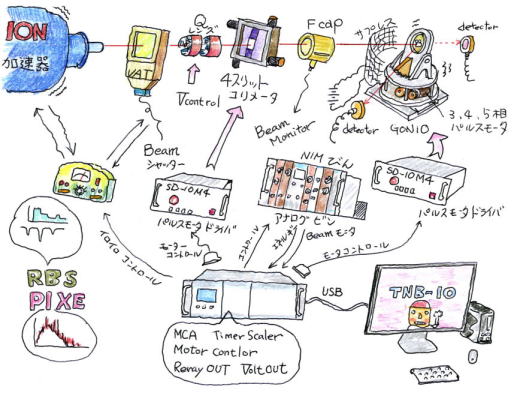 ION
加速器
VAT
Q
レンズ
4スリット
コリメータ
Fcap
サプレス
detector
Vcontrol
Beam
シャッター
Beam
Monitor
detector
GONIO
3,4,5相
パルスモータ
NIMびん
SD-10M4
SD-10M4
パルスモータドライバ
アナログビン
パルスモータドライバ
モーター
コントロール
コントロール
エネルギー
Beamモニタ
モータコントロール
イロイロコントロール
RBS
PIXE
USB
TNB-10
MCA Timer Scaler
Motor Contlor
Reray OUT Volt out